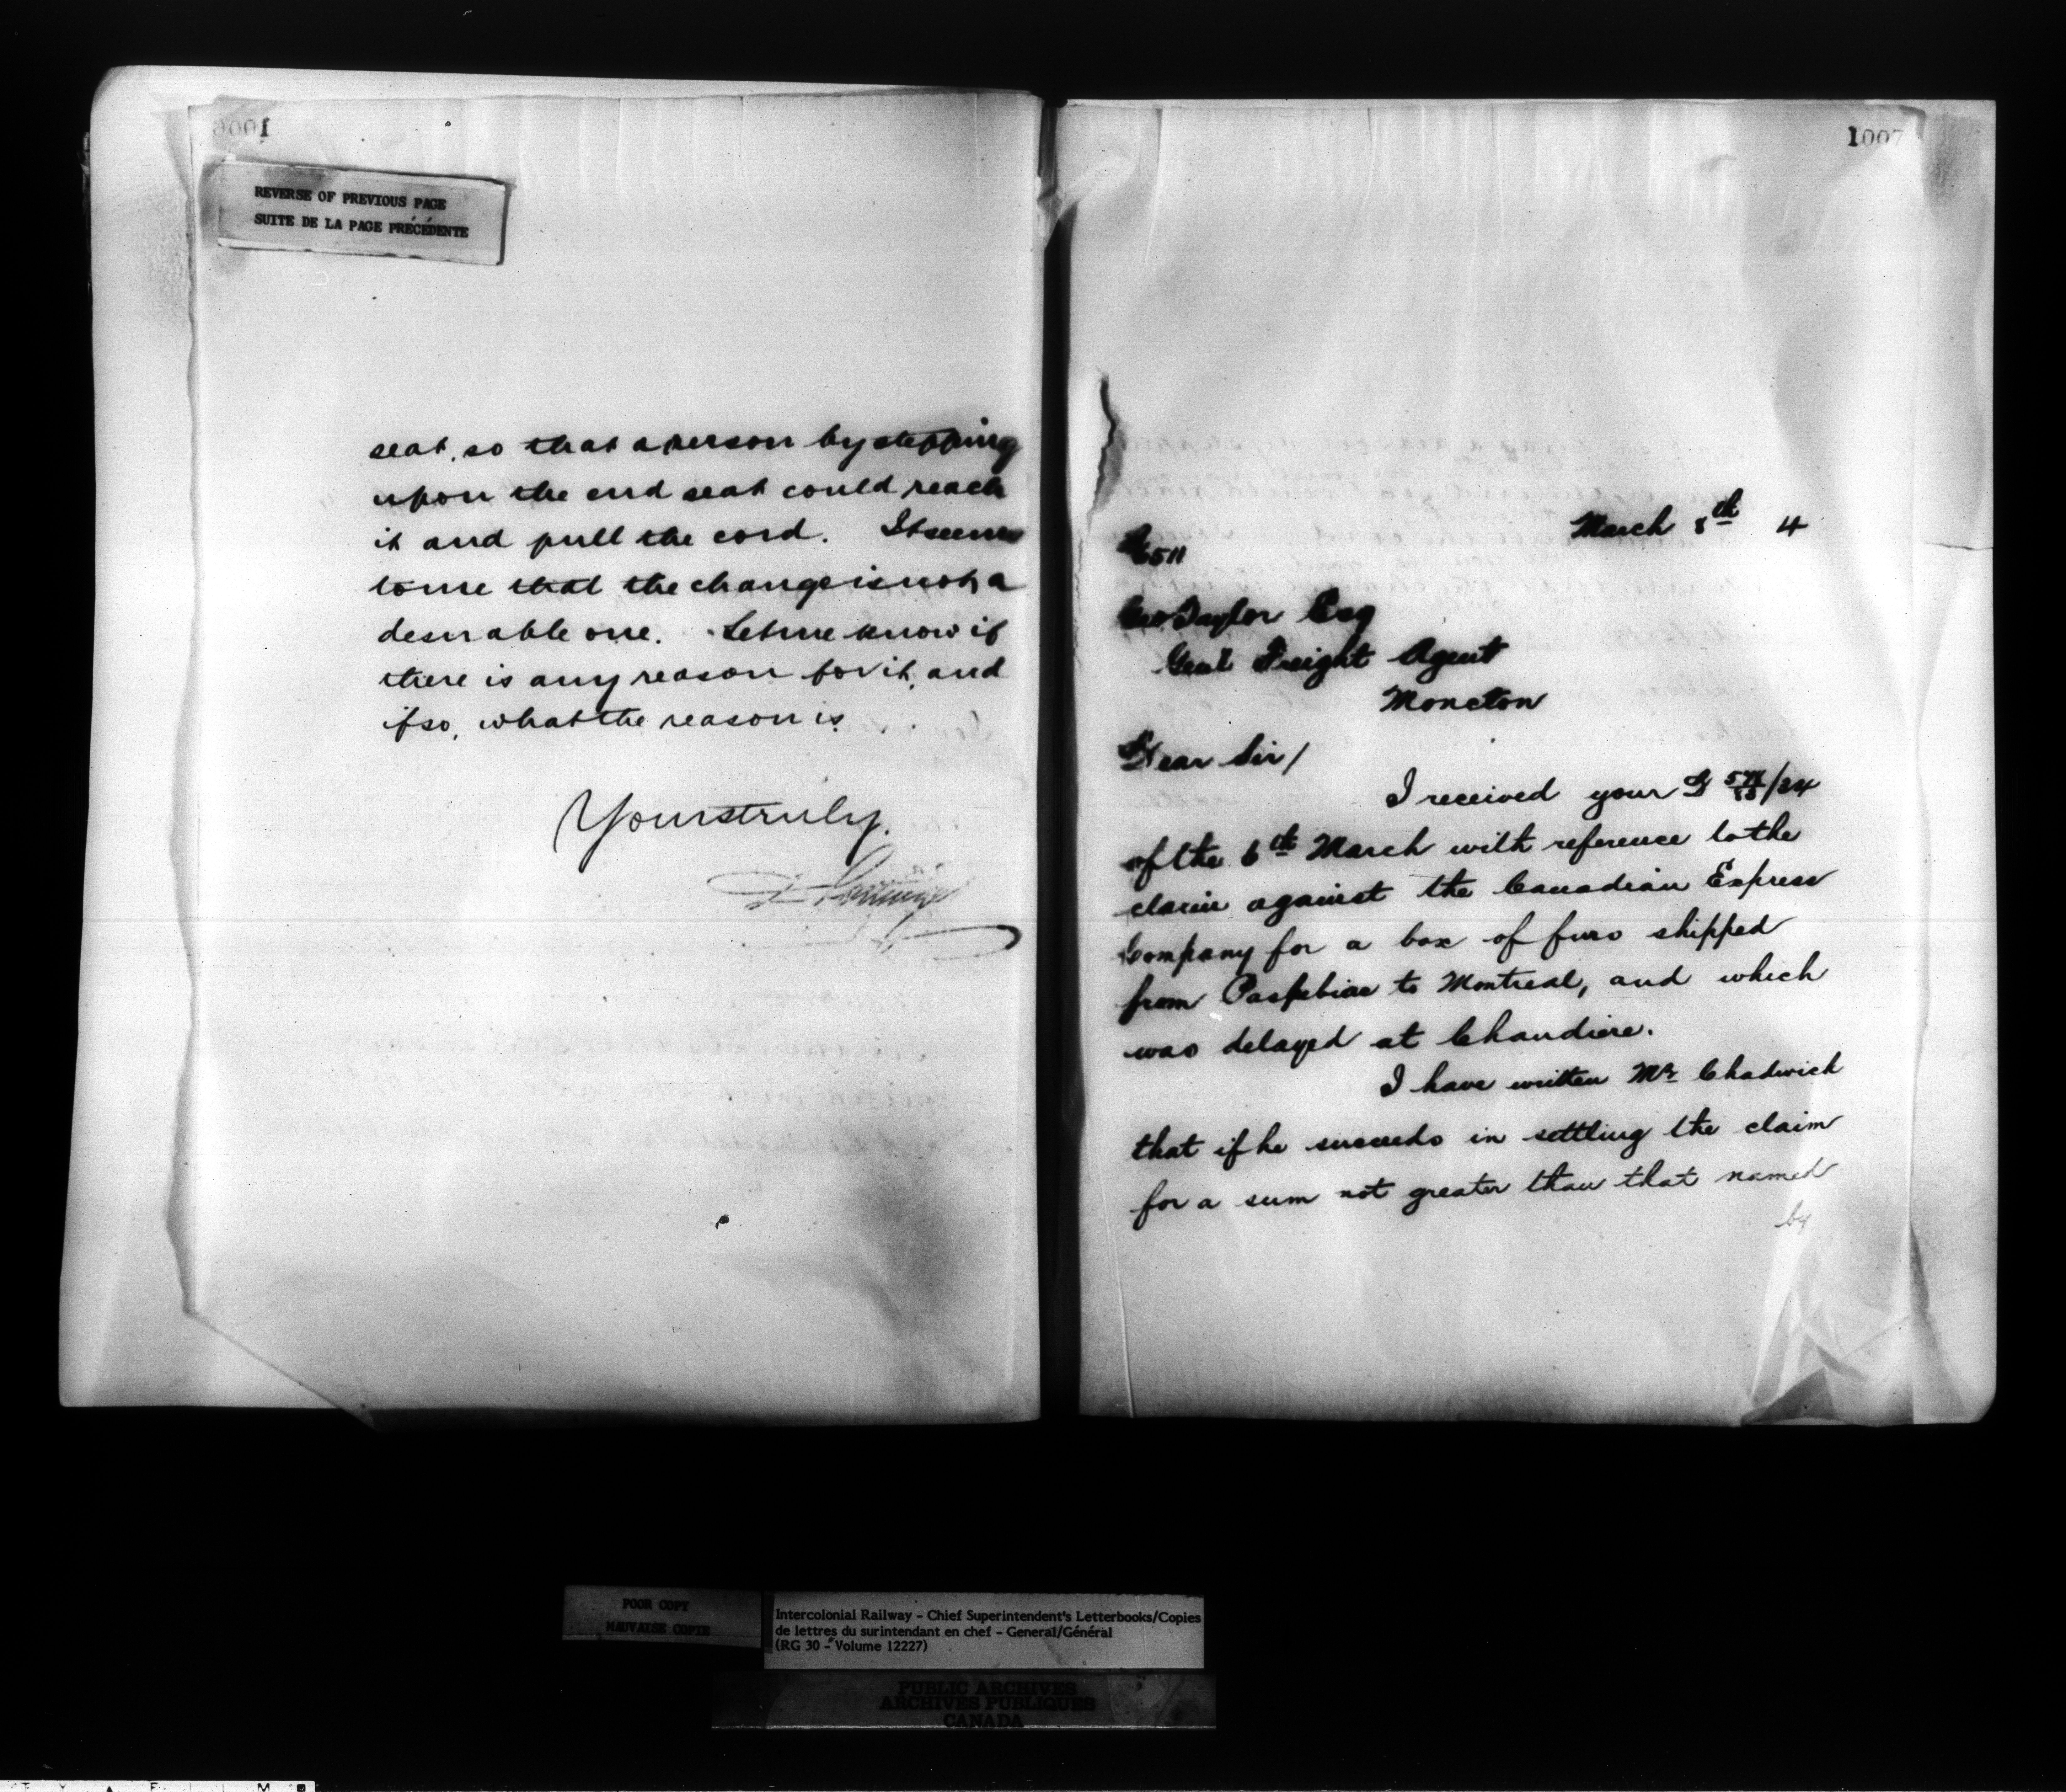 1006
REVERSE OF PREVIOUS PAGE
SUITE DE LA PAGE PRÉCÉDENTE
seat, so that a person by stepping
upon the end seat could reach
it and pull the cord. It seems
to me that the change is not a
desirable one. Let me know if
there is any reason for it, and
if so, what the reason is.
Yours truly.
1007
March 8th 4
Geo Taylor Esq
Genl Freight Agent
Moncton
Dear Sir/
I received your
of the 6th March with reference to the
claim against the Canadian Express
Company for a box of furs shipped
from Paspebiac to Montreal, and which
was delayed at Chaudiere.
I have written Mr Chadwick
that if he succeeds in settling the claim
for a sum not greater than that named
by
POOR COPY
MAUVAISE COPIE
Intercolonial Railway - Chief Superintendent's Letterbooks/Copies
de lettres du surintendant en chef - General/Général
(RG 30 - Volume 12227)
PUBLIC ARCHIVES
ARCHIVES PUBLIQUES
CANADA